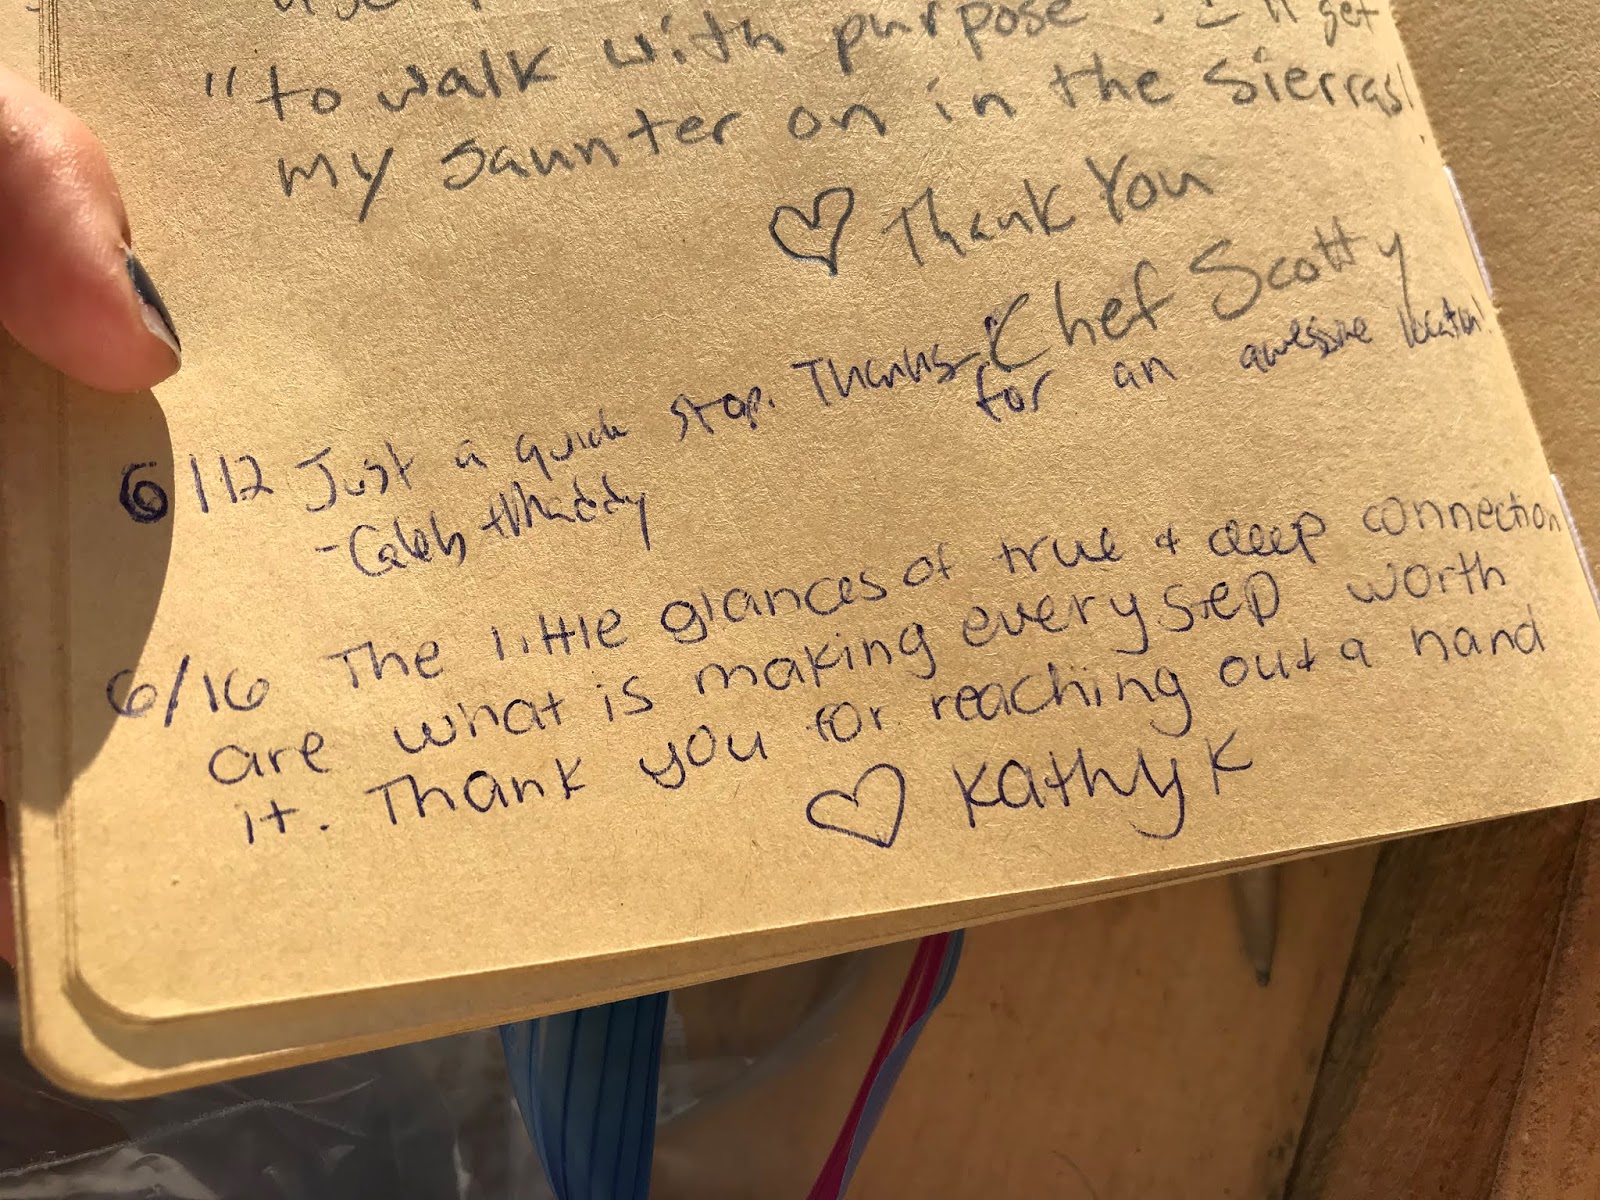 "to walk with purpose". I'll get
my saunter on in the Sierras!
♡ Thank You
Chef Scotty
6/12 Just a quick stop. Thanks
for an awesome location!
-Caleb + Maddy
6/16 The little glances of true & deep connection
are what is making every step worth
it. Thank you for reaching out a hand
♡ Kathy K